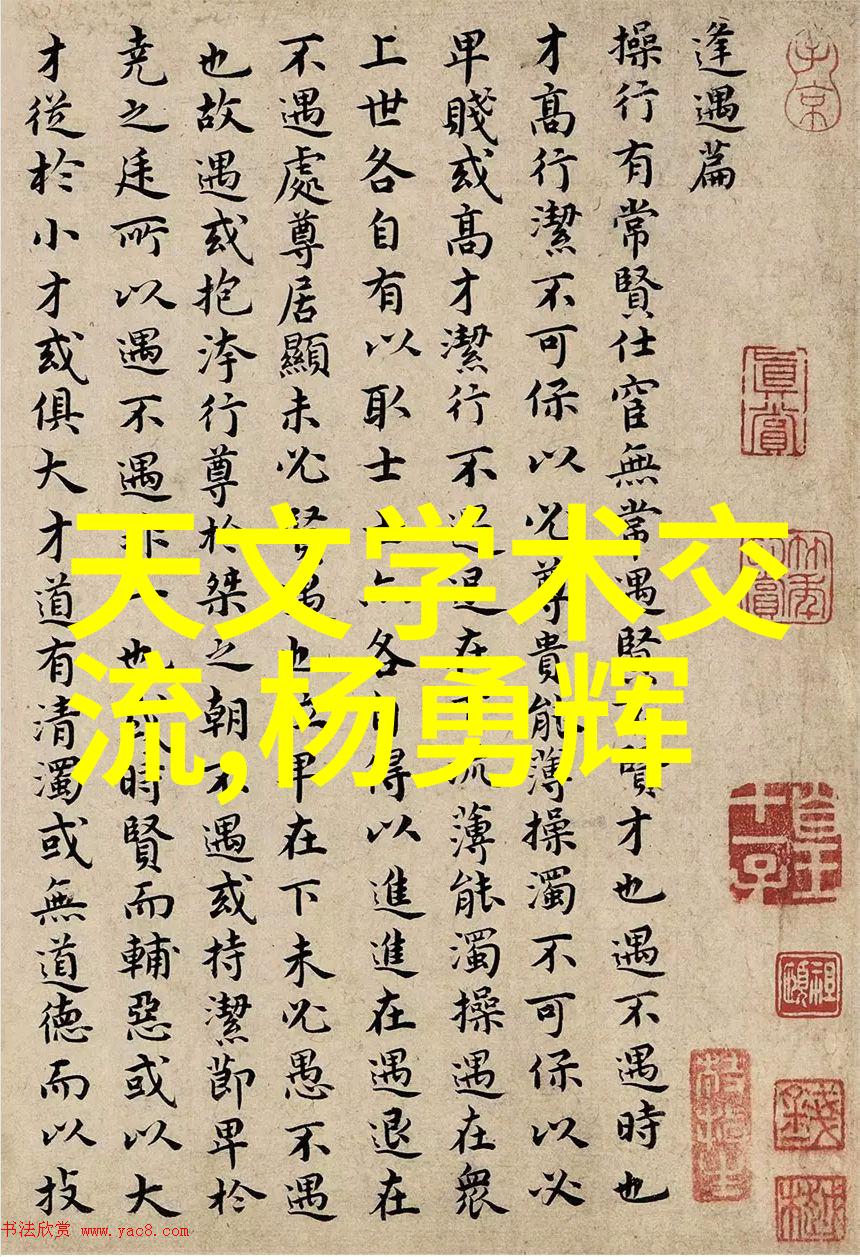 子京
逢遇篇
真賞
操行有常賢仕宦無常遇賢不賢才也遇不遇時也
才高行潔不可保以必尊貴能薄操濁不可保以必
卑賤或高才潔行不遇退在下流薄能濁操遇在衆
上世各自有以取士士亦各自得以進進在遇退在
不遇處尊居顯未必賢遇也位卑在下未必愚不遇
也故遇或抱洿行尊於桀之朝不遇或持潔節卑於
尭之廷所以遇不遇非一也或時賢而輔惡或以大
才從於小才或俱大才道有清濁或無道德而以技
天文学术交
流,杨勇辉
书法欣赏 www.yac8.com